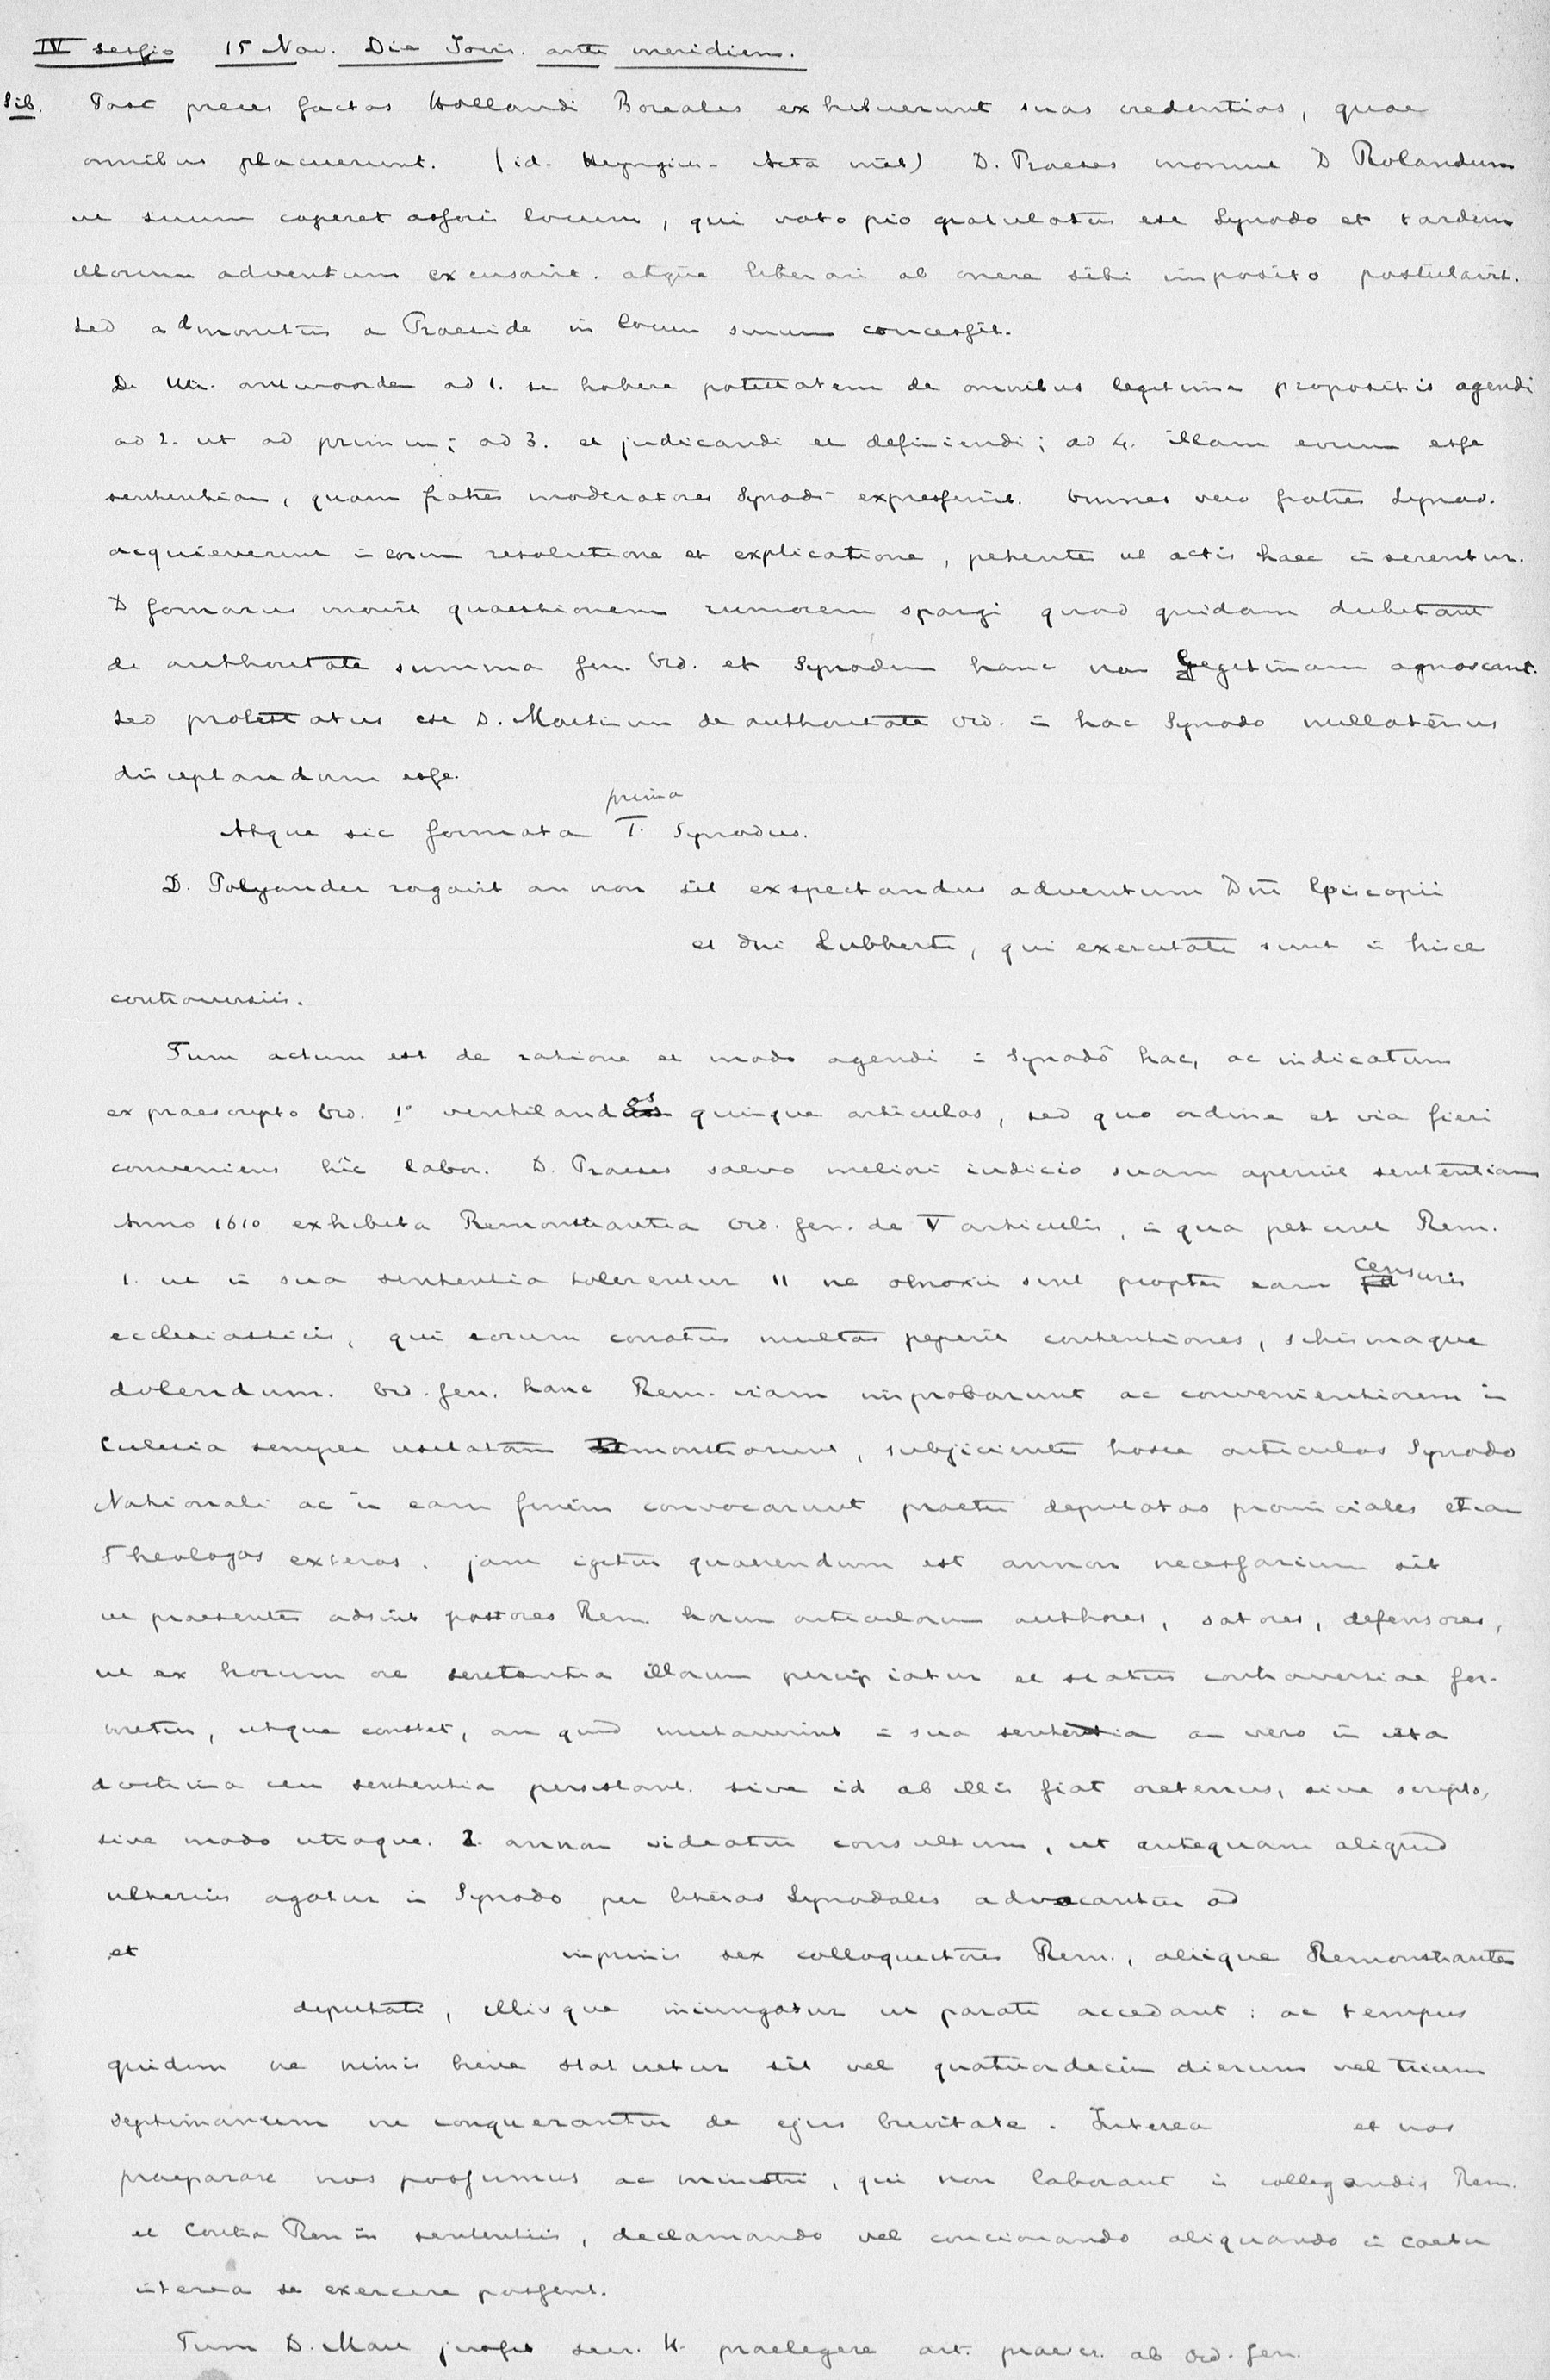 IV sessio 15 Nov. Die Jovis. ante meridiem.
Sib. Post preces factas Hollandi Boreales exhibuerunt suas credentias, quae
omnibus placuerunt. (id. Heyngius - Acta niet) D. Praeses monuit D Rolandum
ut suum caperet assessoris locum, qui voto pio gratulatus est Synodo et tardum
illorum adventum excusavit. atque liberari ab onere sibi imposito postulavit.
sed admonitus a Praeside in locum suum concessit.
De Utr. antwoorden ad 1. se habere potestatem de omnibus legitime propositis agendi
ad 2. ut ad primum; ad 3. et judicandi et definiendi; ad 4. illam eorum esse
sententiam, quam fratres moderatores Synodi expresserint. Omnes vero fratres Synod.
acquieverunt in eorum resolutione et explicatione, petentes ut actis haec insererentur.
D Gomarus movit quaestionem rumorem spargi quod quidam dubitant
de authoritate summa Gen. Ord. et Synodum hanc non legitimam agnoscant.
Sed protestatus est D. Martinum de authoritate Ord. in hac Synodo nullatenus
disceptandum esse.
prima
Atque sic formata I. Synodus.
D. Polyander rogavit an non sit exspectandus adventum Dni Episcopii
et dni Lubberti, qui exercitati sunt in hisce
controversiis.
Tum actum est de ratione et modo agendi in Synodo hac, ac indicatum
ex praescripto Ord. 1º ventilandos quinque articulos, sed quo ordine et via fieri
conveniens hic labor. D. Praeses salvo meliori iudicio suam aperuit sententiam
Anno 1610 exhibita Remonstrantia Ord. Gen. de V articulis, in qua petunt Rem.
1. ut in sua sententia tolerentur 11 ne obnoxii sint propter eam censuris
ecclesiasticis, qui eorum conatus multas peperit contentiones, schismaque
dolendum. Ord. Gen. hanc Rem. viam improbarunt ac convenientiorem in
Ecclesia semper usitatam monstrarunt, subjicientes hosce articulos Synodo
Nationali ac in eam finem convocarunt praeter deputatos provinciales etiam
Theologos exteros. jam igitur quaerendum est annon necessarium sit
ut praesentes adsint pastores Rem. horum articulorum authores, satores, defensores,
ut ex horum ore sententia illorum percipiatur et status controversiae for-
metur, utque constet, an quid mutaverint in sua sententia an vero in ista
doctrina ceu sententia persistant. sive id ab illis fiat oretenus, sive scripto,
sive modo utroque. 2. annon videatur consultum, ut antequam aliquid
ulterius agatur in Synodo per literas Synodales advocantur ad
et imprimis sex collaquutores Rem., aliique Remonstrantes
deputati, illisque iniungatur ut parati accedant: ac tempus
quidem ne nimis breve statuetur sit vel quatuordecim dierum vel trium
septimanarum ne conquerantur de ejus brevitate. Interea et nos
praeparare nos possumus ac ministri, qui non laborant in collegendis Rem.
et Contra Rem is sententiis, declamando vel concionando aliquando in coetu
interea se exercere possent.
Tum D. Mart jussit secr. H. praelegere art. praescr. ab Ord. Gen.